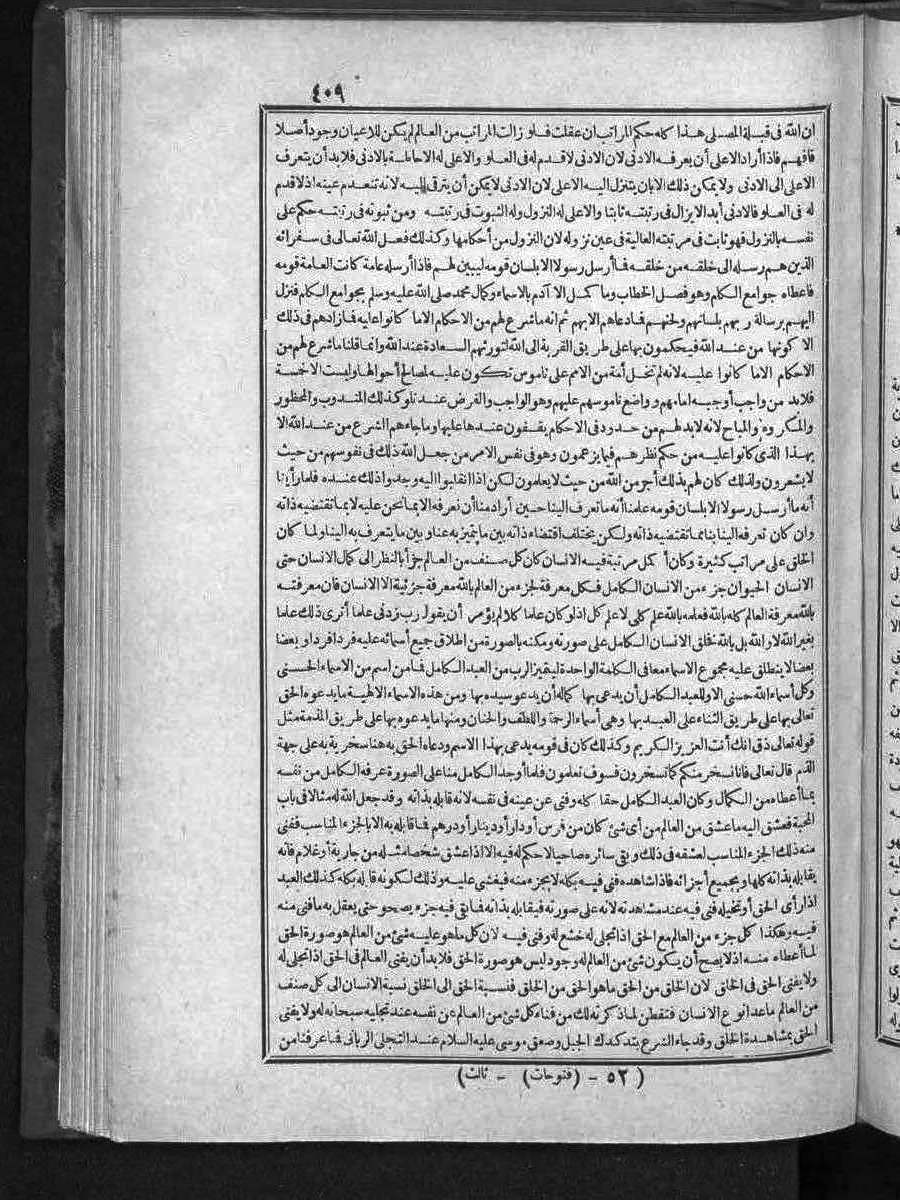 ٤٠٩
ان الله فى قبلة المصلى هذا كله حكم المراتب ان عقلت فلو زالت المراتب من العالم لم يكن للاعيان وجود أصلا
فافهم فاذا أراد الاعلى أن يعرفه الادنى لان الادنى لا قدم له فى العلو والاعلى له الاحاطة بالادنى فلابد أن يتعرف
الاعلى الى الادنى ولا يمكن ذلك الا بان يتنزل اليه الاعلى لان الادنى لا يمكن أن يترقى اليه لانه تنعدم عينه اذ لا قدم
له فى العلو فالادنى أبدا لا يزال فى رتبته ثابتا والاعلى له النزول وله الثبوت فى رتبته ومن ثبوته فى رتبته حكم على
نفسه بالنزول فهو ثابت فى مرتبته العالية فى عين نزوله لان النزول من أحكامها وكذلك فعل الله تعالى فى سفرائه
الذين هم رسله الى خلقه من خلقه فما أرسل رسولا الا بلسان قومه ليبين لهم فاذا أرسله عامة كانت العامة قومه
فاعطاه جوامع الكلم وهو فصل الخطاب وما كمل الا آدم بالاسماء وكمال محمد صلى الله عليه وسلم بجوامع الكلم فنزل
اليهم برسالة ربهم بلسانهم ولحنهم فما دعاهم الا بهم ثم انه ما شرع لهم من الاحكام الا ما كانوا عليه فما زادهم فى ذلك
الا كونها من عند الله فيحكمون بها على طريق القربة الى الله لتورثهم السعادة عند الله وانما قلنا ما شرع لهم من
الاحكام الا ما كانوا عليه لانه لم تخل أمة من الامم على ناموس تكون عليه لمصالح أحوالها وليست الا خمسة
فلابد من واجب أوجبه امامهم وواضع ناموسهم عليهم وهو الواجب والفرض عندنا وكذلك المندوب والمحظور
والمكروه والمباح لانه لابد لهم من حدود فى الاحكام يقفون عندها عليها وما جاءهم الشرع من عند الله الا
بهذا الذى كانوا عليه من حكم نظرهم فيما يزعمون وهو فى نفس الامر من جعل الله ذلك فى نفوسهم من حيث
لا يشعرون ولذلك كان لهم بذلك أجر من الله من حيث لا يعلمون لكن اذا انقلبوا اليه وجدوا ذلك عنده فلما رأينا
أنه ما أرسل رسولا الا بلسان قومه علمنا أنه ما تعرف الينا حين أراد منا أن نعرفه الا بما نحن عليه لا بما تقتضيه ذاته
وان كان تعرفه الينا بنا مما تقتضيه ذاته ولكن يختلف اقتضاء ذاته بين ما يتميز به عنا وبين ما يتعرف به الينا ولما كان
الخلق على مراتب كثيرة وكان أكمل مرتبة فيه الانسان كان كل صنف من العالم جزأ بالنظر الى كمال الانسان حتى
الانسان الحيوان جزء من الانسان الكامل فكل معرفة لجزء من العالم بالله معرفة جزئية الا الانسان فان معرفته
بالله معرفة العالم كله بالله فعلمه بالله علم كلى لا علم كل اذ لو كان علما كلا لم يؤمر أن يقول رب زدنى علما أترى ذلك علما
بغير الله لا والله بل بالله فخلق الانسان الكامل على صورته ومكنه بالصورة من اطلاق جميع أسمائه عليه فردا فردا وبعضا
بعضا لا ينطلق عليه مجموع الاسماء معا فى الكلمة الواحدة ليتميز الرب من العبد الكامل فما من اسم من الاسماء الحسنى
وكل أسماء الله حسنى الا وللعبد الكامل أن يدعى بها كما له أن يدعو سيده بها ومن هذه الاسماء الالهية ما يدعوه الحق
تعالى بها على طريق الثناء على العبد بها وهى أسماء الرحمة واللطف والحنان ومنها ما يدعوه بها على طريق المذمة مثل
قوله تعالى ذق انك أنت العزيز الكريم وكذلك كان فى قومه يدعى بهذا الاسم ودعاه الحق به هنا سخرية به على جهة
الذم قال تعالى فانا نسخر منكم كما تسخرون فسوف تعلمون فلما أوجد الكامل منا على الصورة عرفه الكامل من نفسه
بما أعطاه من الكمال وكان العبد الكامل حقا كله وفنى عن عينه فى نفسه لانه قابله بذاته وقد جعل الله له مثالا فى باب
المحبة فعشق اليه ما عشق من العالم من أى شئ كان من فرس أو دار أو دينار أو درهم فما قابله به الا بالجزء المناسب ففنى
منه ذلك الجزء المناسب لعشقه فى ذلك وبقى سائره صاحيا لا حكم له فيه الا اذا عشق شخصا مثله من جارية أو غلام فانه
يقابله بذاته كلها وبجميع أجزائه فاذا شاهده فنى فيه بكله لا بجزء منه فيغشى عليه وذلك لكونه قابله بكله كذلك العبد
اذا رأى الحق أو تخيله فنى فيه عند مشاهدته لانه على صورته فيقابله بذاته فما بقى فيه جزء يصحو حتى يعقل به ما فنى منه
فيه وهكذا كل جزء من العالم مع الحق اذا تجلى له خشع له وفنى فيه لان كل ما هو عليه شئ من العالم هو صورة الحق
لما أعطاه منه اذ لا يصح أن يكون شئ من العالم له وجود ليس هو صورة الحق فلابد أن يفنى العالم فى الحق اذا تجلى له
ولا يفنى الحق فى الخلق لان الخلق من الحق ما هو الحق من الخلق فنسبة الحق الى الخلق نسبة الانسان الى كل صنف
من العالم ما عدا نوع الانسان فتفطن لما ذكرته لك من فناء كل شئ من العالم عن نفسه عند تجليه سبحانه له ولا يفنى
الحق بمشاهدة الخلق وقد جاء الشرع بتدكدك الجبل وصعق موسى عليه السلام عند التجلى الربانى فما عرفنا من
( ٥٢ - (فتوحات) - ثالث)